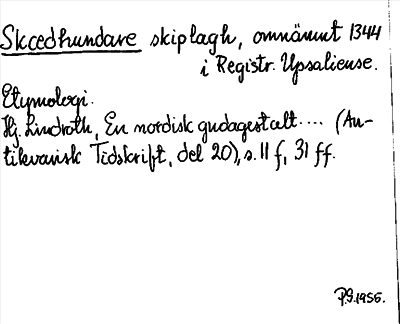 Skcedhundare skiplagh, omnämnt 1344
i Registr. Upsaliense.
Etymologi.
Hj. Lindroth, En nordisk gudagestalt.... (An-
tikvarisk Tidskrift, del 20), s. 11 f, 31 ff.
P.G. 1956.